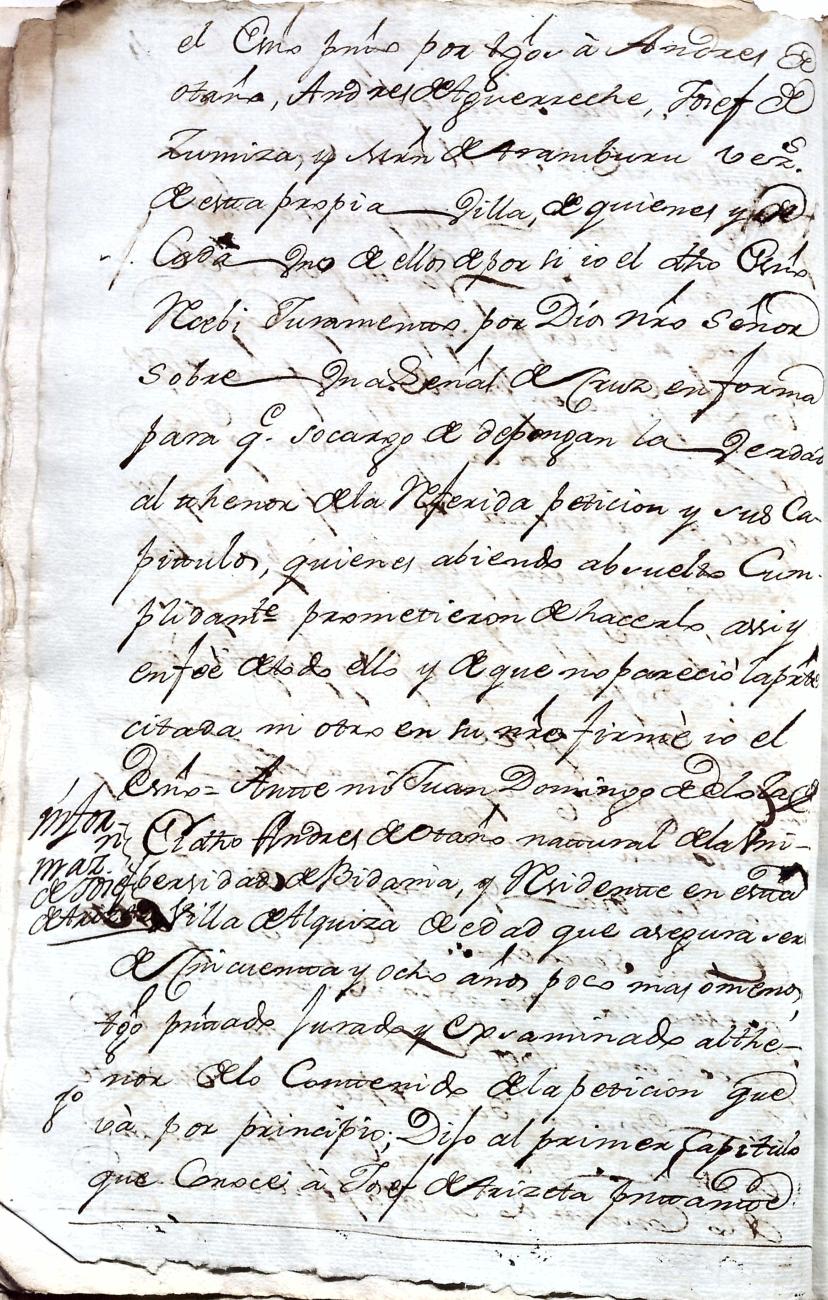 el Essno pnto por tgos à Andres de
otaño, Andres de Aguerreche, Josef de
Zumiza, y Mrn de Aramburu vezs.
de esta propia Villa, de quienes y de
Cada Vno de ellos de por si io el dho Essno
Recebi Juramento por Dios nro Señor
sobre Vna Señal de Cruz en forma
para qe. socargo de depongan la Verdad
al thenor de la Referida peticion y sus Ca-
pitulos, quienes abiendo absuelto Cum-
plidamte prometieron de hacerlo assi y
en feè de todo ello y de que no pareciò la prte
citada ni otro en su nre firmè io el
Essno= Ante mi Juan Domingo de
Infor-
n
maz.
de Josef
de
El dho Andres de Otaño natural de la Vni-
bersidad de Bidania, y Residente en esta
Villa de Alquiza de edad que asegura ser
de Cincuenta y ocho años poco mas o menos,
tgo pntado Jurado y exsaminado al the-
nor de lo Contenido de la peticion que
và por principio; Dijo al primer Capitulo
que Conoce à Josef de Arizeta pntante